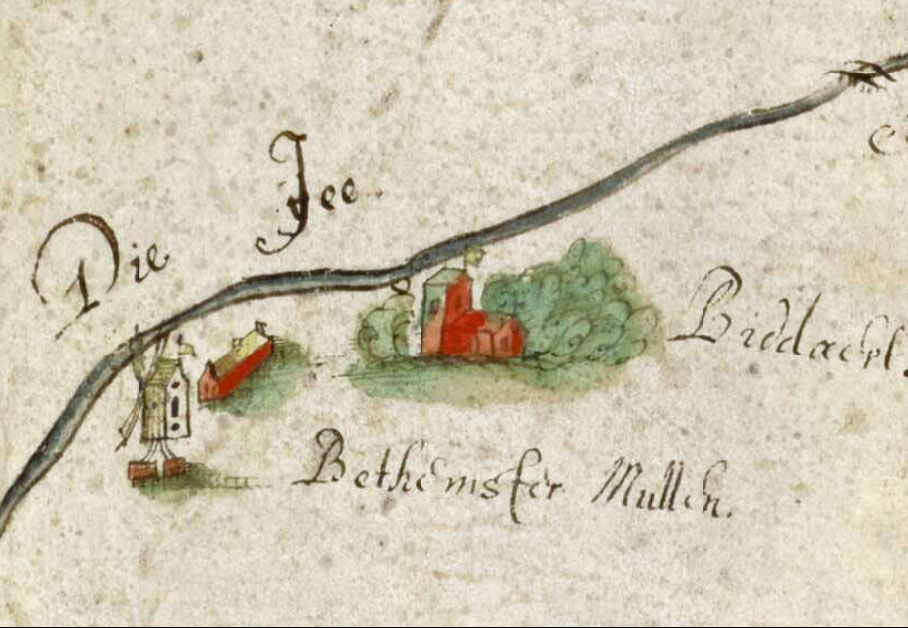 Die Jee.
Biddaehl
Bethemster Mullen.